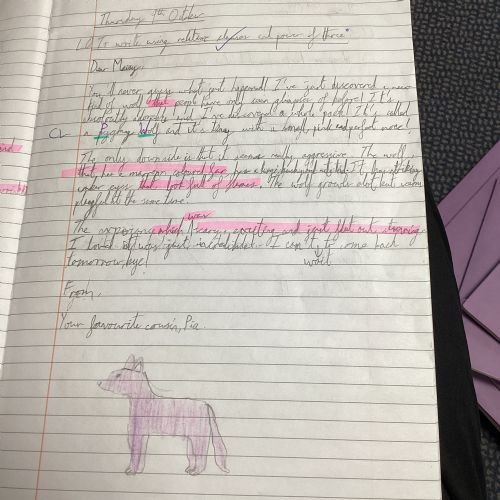 Thursday 9th October
L.O To write using relative clauses and power of three
Dear Maisy,
You'll never guess what just happened! I've just discovered a new
kind of wolf that people have only seen glimpses of before! It's
and I've discovered a whole pack! It's called
a Pygmy Wolf and it's tiny with a small, pink and perfect nose!
The only downside is that it seems really aggressive. The wolf
that has a maroon coloured
under eyes that look full of The wolf growls alot but seems
playful at the same time.
was
The experience which scary, exciting and just flat out stunning
I loved it was just I can't to come back
wait
tomorrow, bye!
From,
Your favourite cousin, Pia.